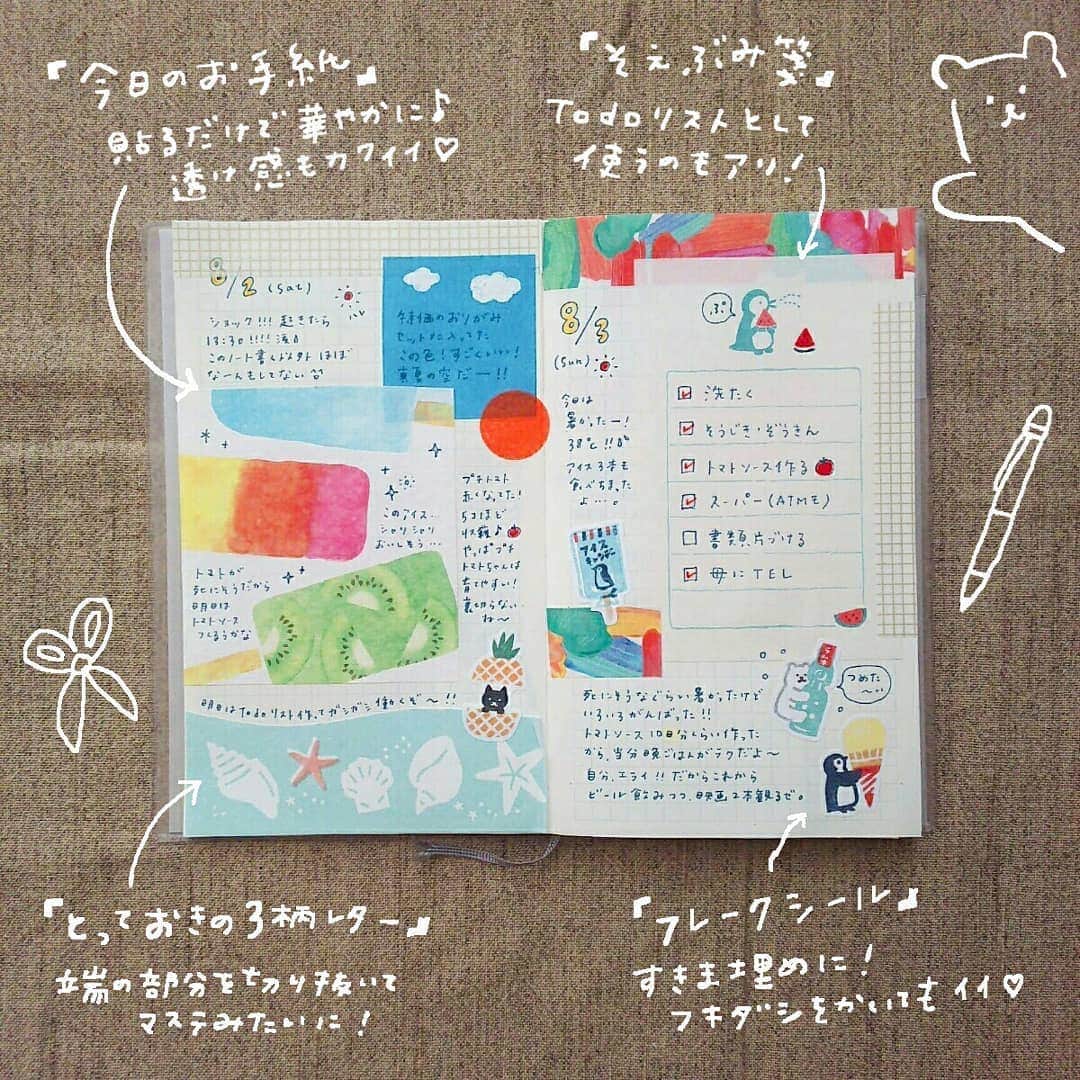 「今日のお手紙」
貼るだけで華やかに♪
透け感もカワイイ♡
「そえぶみ箋」
Todoリストとして
使うのもアリ!
8/2 (sat)
ショック!!! 起きたら
13:30!!!!
このノート書く以外 ほぼ
なーんもしてない
特価のおりがみ
セットに入ってた
この色!すごくいい!
真夏の空だー!!
このアイス…
シャリシャリ
おいしそう…
プチトマト
赤くなってた!
5コほど
収穫♪
やっぱプチ
トマトちゃんは
育てやすい!
裏切らない
ね〜
トマトが
死にそうだから
明日は
トマトソース
つくろうかな
明日はTodoリスト作ってガシガシ働くぞ〜!!
8/3
(sun)
今日は
暑かったー!
38℃!!
アイス3本も
食べちまった
よ…。
アイス
キャンデー
ぷ
洗たく
そうじき・ぞうきん
トマトソース作る
スーパー(ATME)
書類片づける
母にTEL
ラムネ
つめた
〜い
死にそうなぐらい暑かったけど
いろいろがんばった!!
トマトソース10日分くらい作った
から、当分晩ごはんがラクだよ〜
自分、エライ!!だからこれから
ビール飲みつつ、映画2本観るぜ。
「とっておきの3柄レター」
端の部分を切り抜いて
マステみたいに!
「フレークシール」
すきま埋めに!
フキダシをかいてもイイ♡